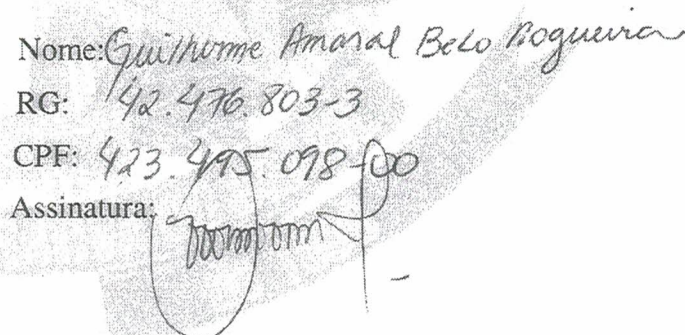 Nome: Guilherme Amaral Belo Nogueira
RG: 42.476.803-3
CPF: 423.495.098-00
Assinatura: